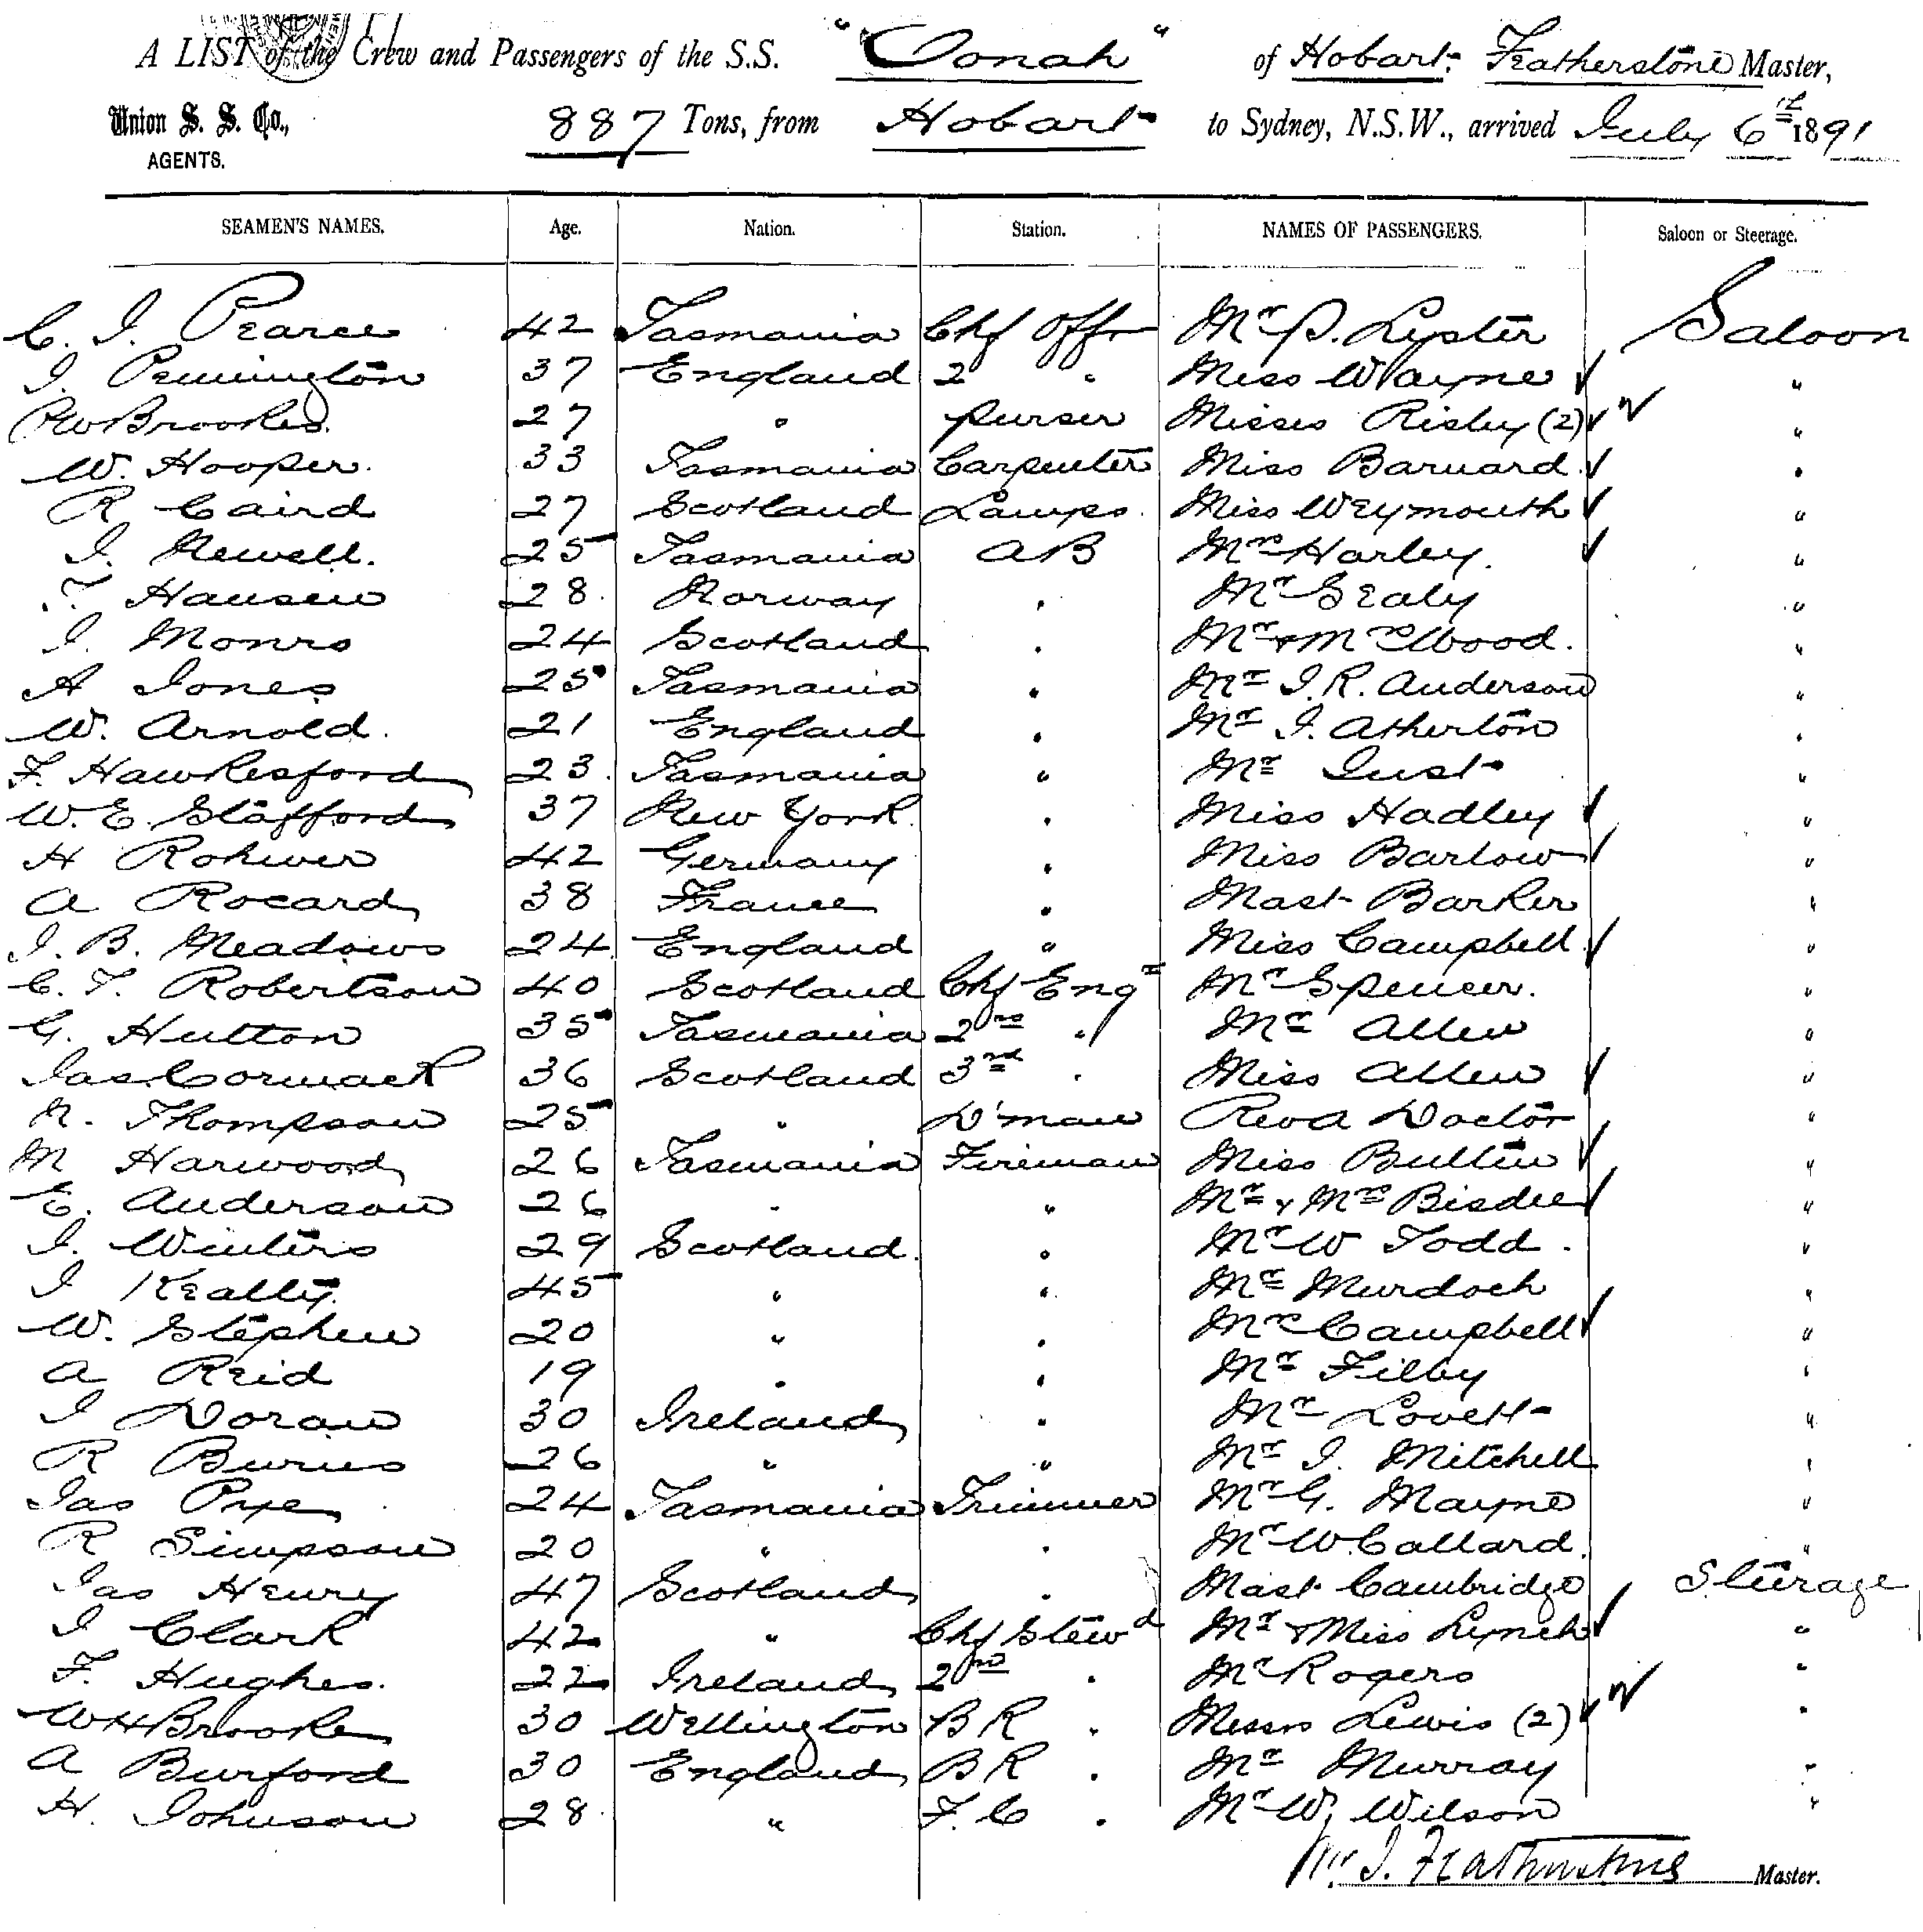 A LIST of the Crew and Passengers of the S.S. "Oonah" of Hobart. Featherstone Master,
Union S. S. Co., 887 Tons, from Hobart to Sydney, N.S.W., arrived July 6th 1891
AGENTS.
SEAMEN'S NAMES. Age. Nation. Station. NAMES OF PASSENGERS. Saloon or Steerage.
C. J. Pearce 42 Tasmania Chf Offr Mr P. Lyster Saloon
J. Pennington 37 England 2 " Miss Wayne ✓ "
RW Brookes 27 " purser Misses Risby (2) ✓✓ "
W. Hooper. 33 Tasmania Carpenter Miss Barnard ✓ "
R Caird 27 Scotland Lamps. Miss Weymouth ✓ "
J. Newell. 25 Tasmania AB Mrs Harley. ✓ "
T. Hansen 28. Norway " Mr Sealy "
J. Monro 24 Scotland " Mr & Mrs Wood. "
A Jones 25 Tasmania " Mr J. R. Anderson "
W. Arnold. 21 England " Mr J. Atherton "
F. Hawkesford 23. Tasmania " Mr Just "
W. E. Stafford 37 New York. " Miss Hadley ✓ "
H Rohwer 42 Germany " Miss Barlow ✓ "
A Rocard 38 France " Mast Barker "
J. B. Meadows 24 England " Miss Campbell ✓ "
C. T. Robertson 40 Scotland Chf Engr Mr Spencer. "
G. Hutton 35 Tasmania 2nd " Mr Allen "
Jas Cormack 36 Scotland 3rd " Miss Allen ✓ "
N. Thompson 25 " D'man Revd Doctor "
M Harwood 26 Tasmania Fireman Miss Bullen ✓ "
E. Anderson 26 " " Mr & Mrs Bisdee ✓ "
J. Winters 29 Scotland. " Mr W Todd. "
J Kealty. 45 " " Mr Murdoch "
W. Stephen 20 " " Mrs Campbell ✓ "
A Reid 19 " " Mr Filby "
J Doran 30 Ireland " Mr Lovett "
R Burns 26 " " Mr J. Mitchell "
Jas Pye 24 Tasmania Trimmer Mr G. Mayne "
R Simpson 20 " " Mr W. Callard. "
Jas Henry 47 Scotland " Mast Cambridge Steerage
J Clark 42 " Chf Stewd Mr & Miss Lynch ✓ "
F. Hughes. 22 Ireland 2nd " Mr Rogers "
WH Brooke 30 Wellington BR " Messrs Lewis (2) ✓✓ "
A Burford 30 England BR " Mr Murray "
H. Johnson 28. " F. C " Mr W. Wilson "
J. Featherstone Master.